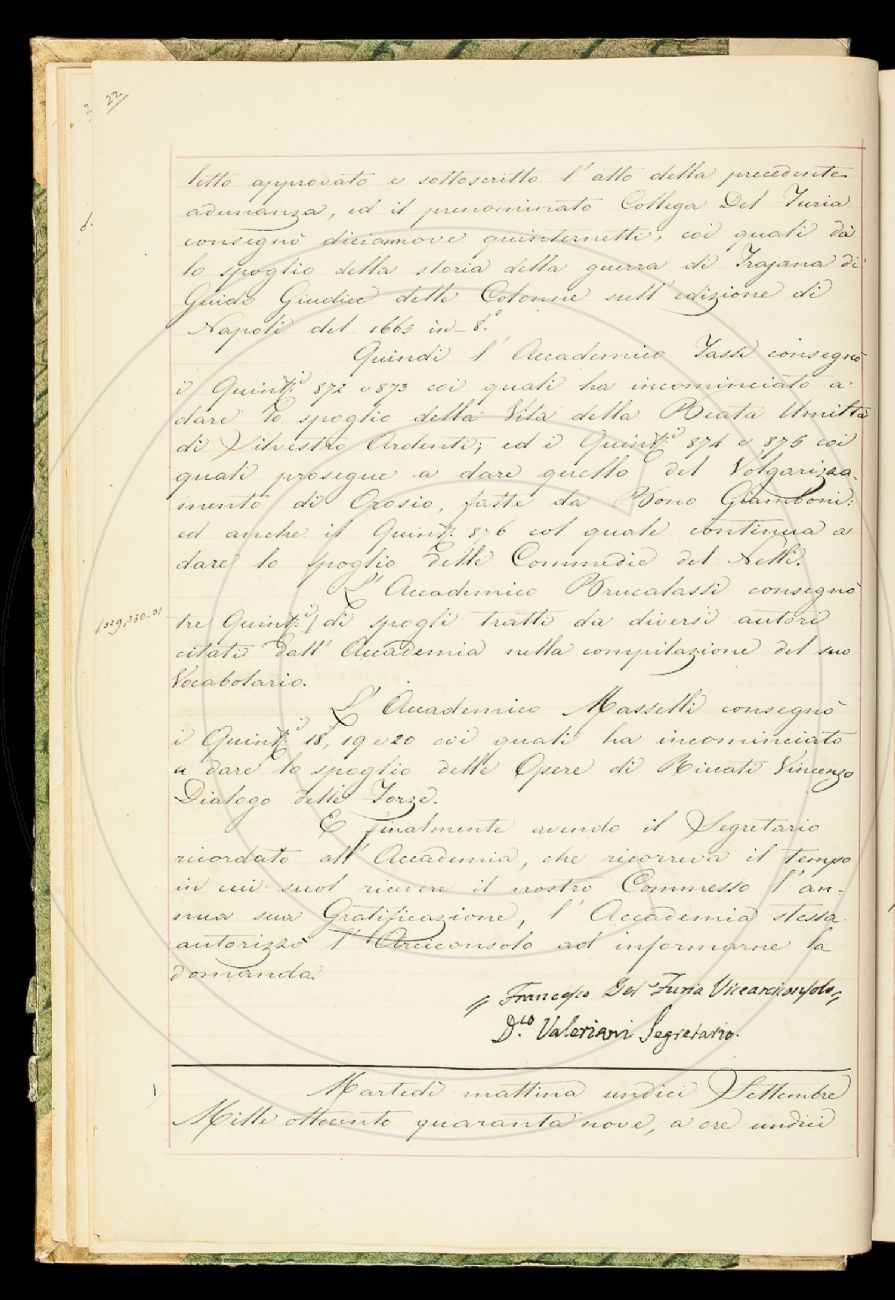 22
letto approvato e sottoscritto l'atto della precedente
adunanza, ed il prenominato Collega Del Furia
consegnò diciannove quinternetti, coi quali dà
lo spoglio della storia della guerra di Trojana di
Guido Giudice delle Colonne sull'edizione di
Napoli del 1665 in-8.º
Quindi l'Accademico Tassi consegnò
i Quint.ⁱ 872 e 873 coi quali ha incominciato a
dare lo spoglio della Vita della Beata Umiltà
di Silvestro Ardenti; ed i Quint.ⁱ 874 e 875 coi
quali prosegue a dare quello del Volgarizza-
mento di Orosio, fatto da Bono Giamboni:
ed anche il Quint.º 876 col quale continua a
dare lo spoglio delle Commedie del Nelli.
L'Accademico Brucalassi consegnò
tre Quint.ⁱ di spogli tratti da diversi autori
citati dall'Accademia nella compilazione del suo
Vocabolario.
L'Accademico Masselli consegnò
i Quint.ⁱ 18, 19 e 20 coi quali ha incominciato
a dare lo spoglio delle Opere di Riccati Vincenzo
Dialogo delle Forze.
E finalmente avendo il Segretario
ricordato all'Accademia, che ricorreva il tempo
in cui suol ricevere il nostro Commesso l'an-
nua sua Gratificazione, l'Accademia stessa
autorizzò l'Arciconsolo ad informarne la
domanda.
" Francesco Del Furia Vicearciconsolo "
D.co Valeriani Segretario.
Martedì mattina undici Settembre
Mille ottocento quaranta nove, a ore undici